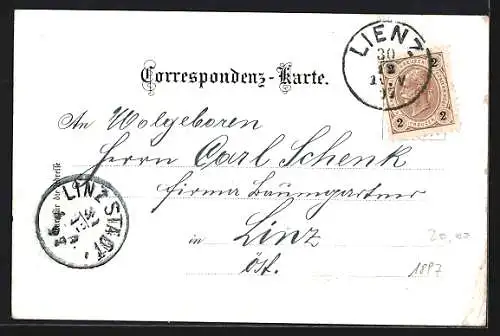 LIENZ
30
2 2
2 2
Correspondenz-Karte.
An Wolgeboren
Herrn Carl Schenk
Firma Baumgartner
in Linz
Öst.
LINZ STADT
20,00
1897